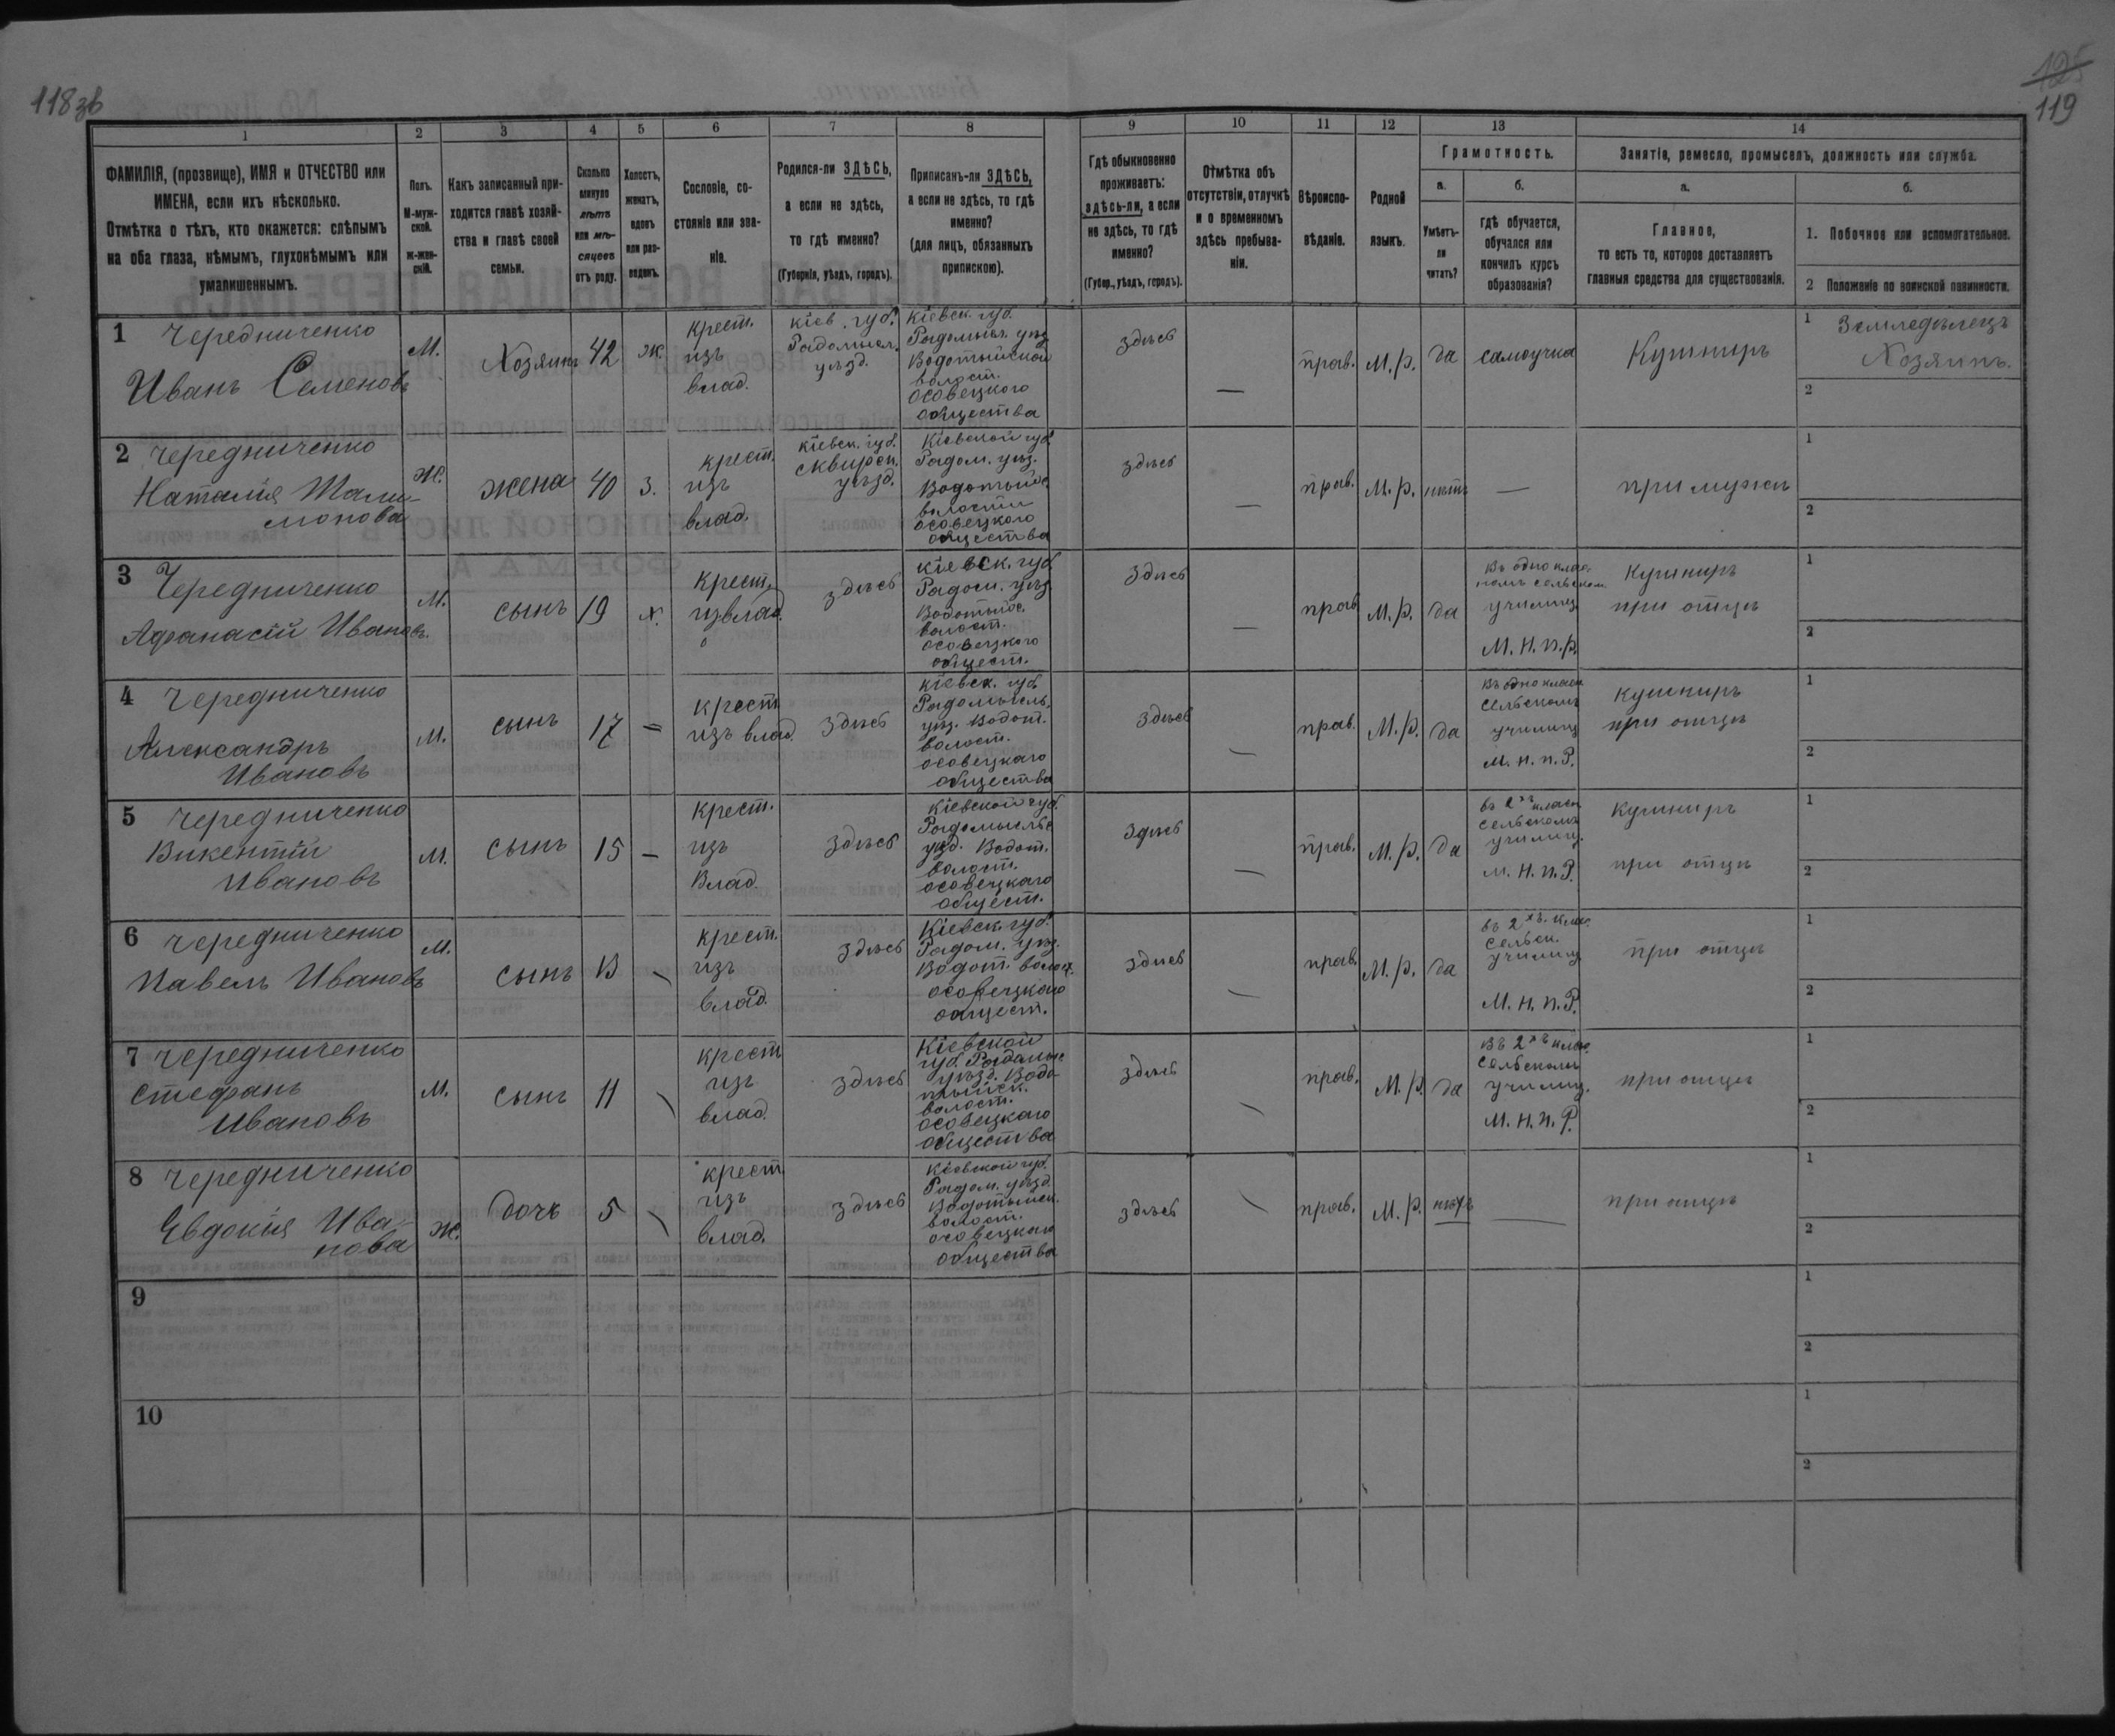 118зв
125
119
1 2 3 4 5 6 7 8 9 10 11 12 13 14
ФАМИЛІЯ, (прозвище), ИМЯ и ОТЧЕСТВО или
ИМЕНА, если ихъ нѣсколько.
Отмѣтка о тѣхъ, кто окажется: слѣпымъ
на оба глаза, нѣмымъ, глухонѣмымъ или
умалишеннымъ.
Полъ.
М-муж-
ской.
ж-жен-
скій.
Какъ записанный при-
ходится главѣ хозяй-
ства и главѣ своей
семьи.
Сколько
минуло
лѣтъ
или мѣ-
сяцевъ
отъ роду.
Холостъ,
женатъ,
вдовъ
или раз-
веденъ.
Сословіе, со-
стояніе или зва-
ніе.
Родился-ли ЗДѢСЬ,
а если не здѣсь,
то гдѣ именно?
(Губернія, уѣздъ, городъ).
Приписанъ-ли ЗДѢСЬ,
а если не здѣсь, то гдѣ
именно?
(для лицъ, обязанныхъ
припискою).
Гдѣ обыкновенно
проживаетъ:
здѣсь-ли, а если
не здѣсь, то гдѣ
именно?
(Губер., уѣздъ, городъ).
Отмѣтка объ
отсутствіи, отлучкѣ
и о временномъ
здѣсь пребыва-
ніи.
Вѣроиспо-
вѣданіе.
Родной
языкъ.
Грамотность.
а.
Умѣетъ-
ли
читать?
б.
гдѣ обучается,
обучался или
кончилъ курсъ
образованія?
Занятіе, ремесло, промыселъ, должность или служба.
а.
Главное,
то есть то, которое доставляетъ
главныя средства для существованія.
б.
1. Побочное или вспомогательное.
2 Положеніе по воинской повинности.
1 Чередниченко
Иванъ Семеновъ
М.
Хозяинъ
42
ж.
крест.
изъ
влад.
кіев. губ.
Радомысл.
уѣзд.
Кіевск. губ.
Радомысл. уѣз
Водотыйской
волост.
Осовецкого
общества
здѣсь
—
прав.
М.р.
да
самоучка
Кушниръ
1 Земледѣлецъ
Хозяинъ.
2
2 Чередниченко
Наталія
монова
Ж.
жена
40
З.
крест.
изъ
влад.
кіевск. губ.
сквирск.
уѣзд.
Кіевской губ.
Радом. уѣз.
Водотыйс.
волости
осовецкого
общества
здѣсь
—
прав.
М.р.
нѣтъ
—
при мужѣ
1
2
3 Чередниченко
Афанасій Ивановъ.
М.
сынъ
19
х.
Крест.
изъ влад.
здѣсь
Кіевск. губ
Радом. уѣз.
Водотыйс.
волост.
осовецкого
общест.
Здѣсь
—
прав.
М.р.
да
Въ одноклас-
номъ сельском.
училищ.
М.Н.п.р.
Кушниръ
при отцѣ
1
2
4 Чередниченко
Александръ
Ивановъ
М.
сынъ
17
=
крест.
изъ влад.
здѣсь
Кіевск. губ.
Радомысль.
уѣз. Водот.
волост.
осовецкаго
общества
Здѣсь
—
прав.
М.р.
да
Въ однокласн
сельскомъ
училищ
М.Н.п.Р.
Кушниръ
при отцѣ
1
2
5 Чередниченко
Викентій
Ивановъ
М.
сынъ
15
—
крест.
изъ
Влад
здѣсь
Кіевской губ.
Радомысльс
уѣзд. Водот.
волост.
осовецкаго
общест.
здѣсь
—
прав.
М.р.
да
въ 2хъ класн
сельскомъ
училищ.
М.Н.п.Р.
Кушниръ
при отцѣ
1
2
6 Чередниченко
Павелъ Ивановъ
М.
сынъ
13
крест.
изъ
влад.
здѣсь
Кіевск. губ.
Радом. уѣз.
Водот. волост.
осовецкаго
общест.
здѣсь
—
прав.
М.р.
да
въ 2хъ. клас.
сельск.
училищ
М.Н.п.Р.
при отцѣ
1
2
7 Чередниченко
Стефанъ
Ивановъ
М.
сынъ
11
крест
изъ
влад.
здѣсь
Кіевской
губ. Радомыс
уѣзд. Водо-
тыйск.
волост.
осовецкаго
общества
здѣсь
прав.
М.р.
да
Въ 2хъ клас.
Сельском
училищ.
М.Н.п.Р.
при отцѣ
1
2
8 Чередниченко
Евдокія Ива-
нова
Ж.
дочь
5
крест
изъ
влад.
здѣсь
Кіевской губ.
Радом. уѣзд.
Водотыйск.
волост.
осовецкаго
общества
здѣсь
прав.
М.р.
нѣтъ
—
при отцѣ
1
2
9
1
2
10
1
2